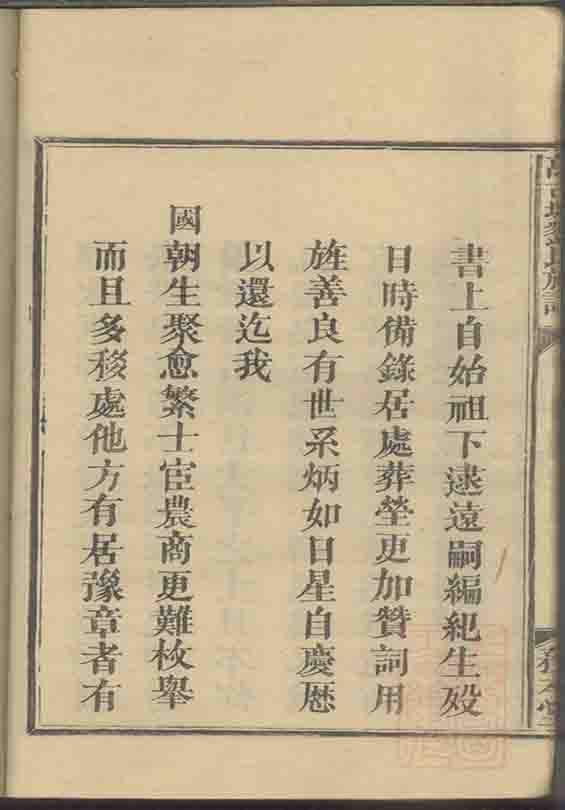 書上自始祖下逮遠嗣編紀生殁
日時備錄居處葬塋更加贊詞用
旌善良有世系炳如日星自慶歷
以還迄我
國朝生聚愈繁士宦農商更難枚舉
而且多移處他方有居豫章者有